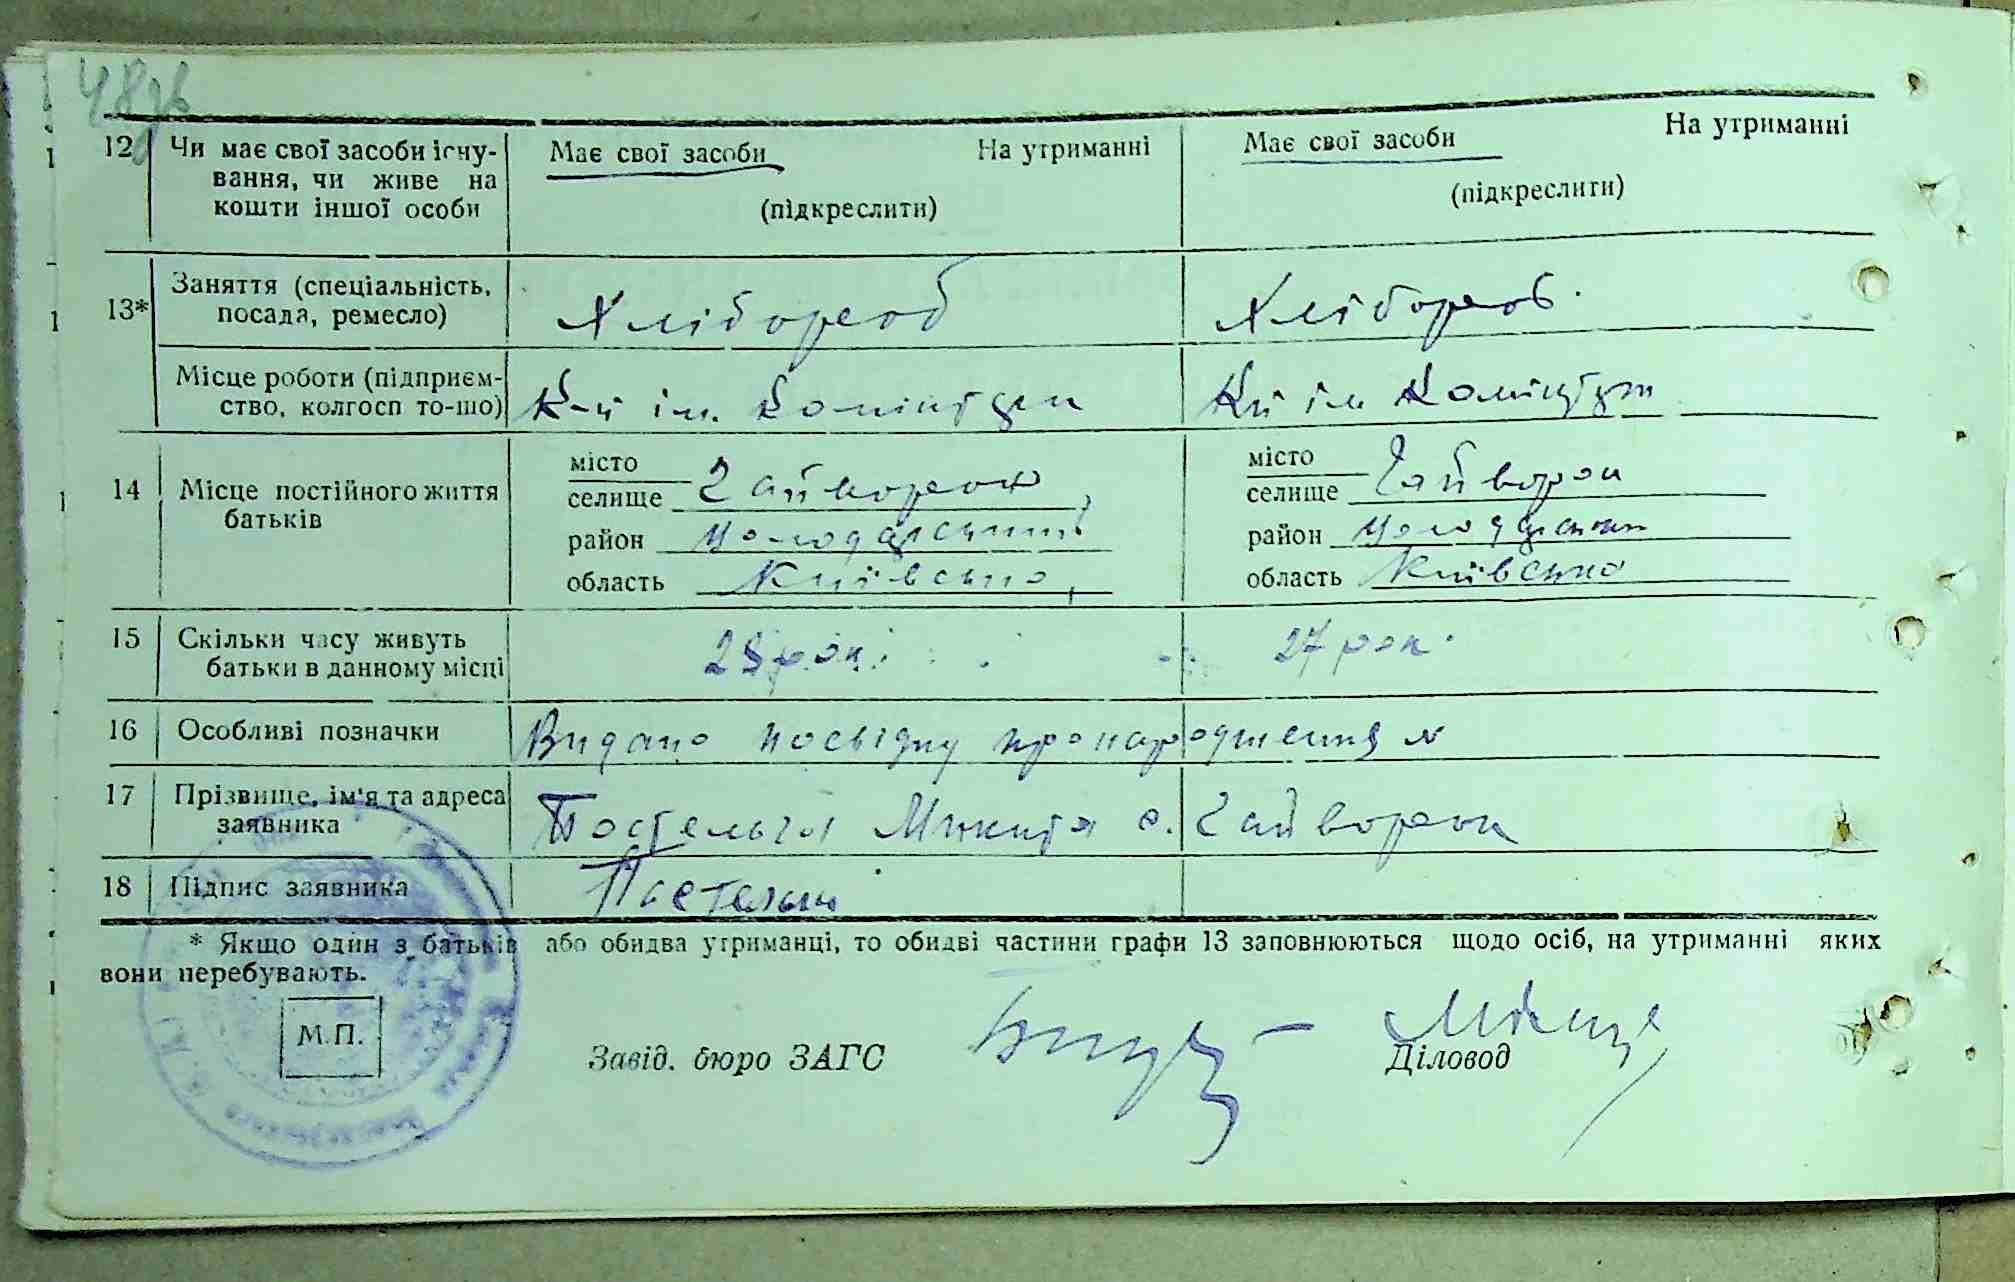 48зв
12 Чи має свої засоби існу- Має свої засоби На утриманні Має свої засоби На утриманні
вання, чи живе на
кошти іншої особи (підкреслити) (підкреслити)
13* Заняття (спеціальність,
посада, ремесло) Хлібороб Хлібороб
Місце роботи (підприєм-
ство, колгосп то-що) К-п ім. Комінтерн К-п ім. Комінтерн
місто місто
14 Місце постійного життя селище Гайворон селище Гайворон
батьків район Володарський район Володарський
область Київська область Київська
15 Скільки часу живуть 28 рок. 27 рок.
батьки в данному місці
16 Особливі позначки Видано посвідку про народження №
17 Прізвище, ім'я та адреса
заявника Постельга Микита с. Гайворон
18 Підпис заявника
* Якщо один з батьків або обидва утриманці, то обидві частини графи 13 заповнюються щодо осіб, на утриманні яких
вони перебувають.
М.П.
Завід. бюро ЗАГС Діловод